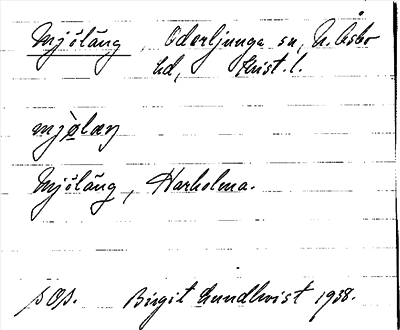 Mjöläng, Oderljunga sn, N. Åsbo
hd, Krist. l.
mjòlæŋ
Mjöläng, Harholma.
SOS. Birgit Lundkvist 1938.